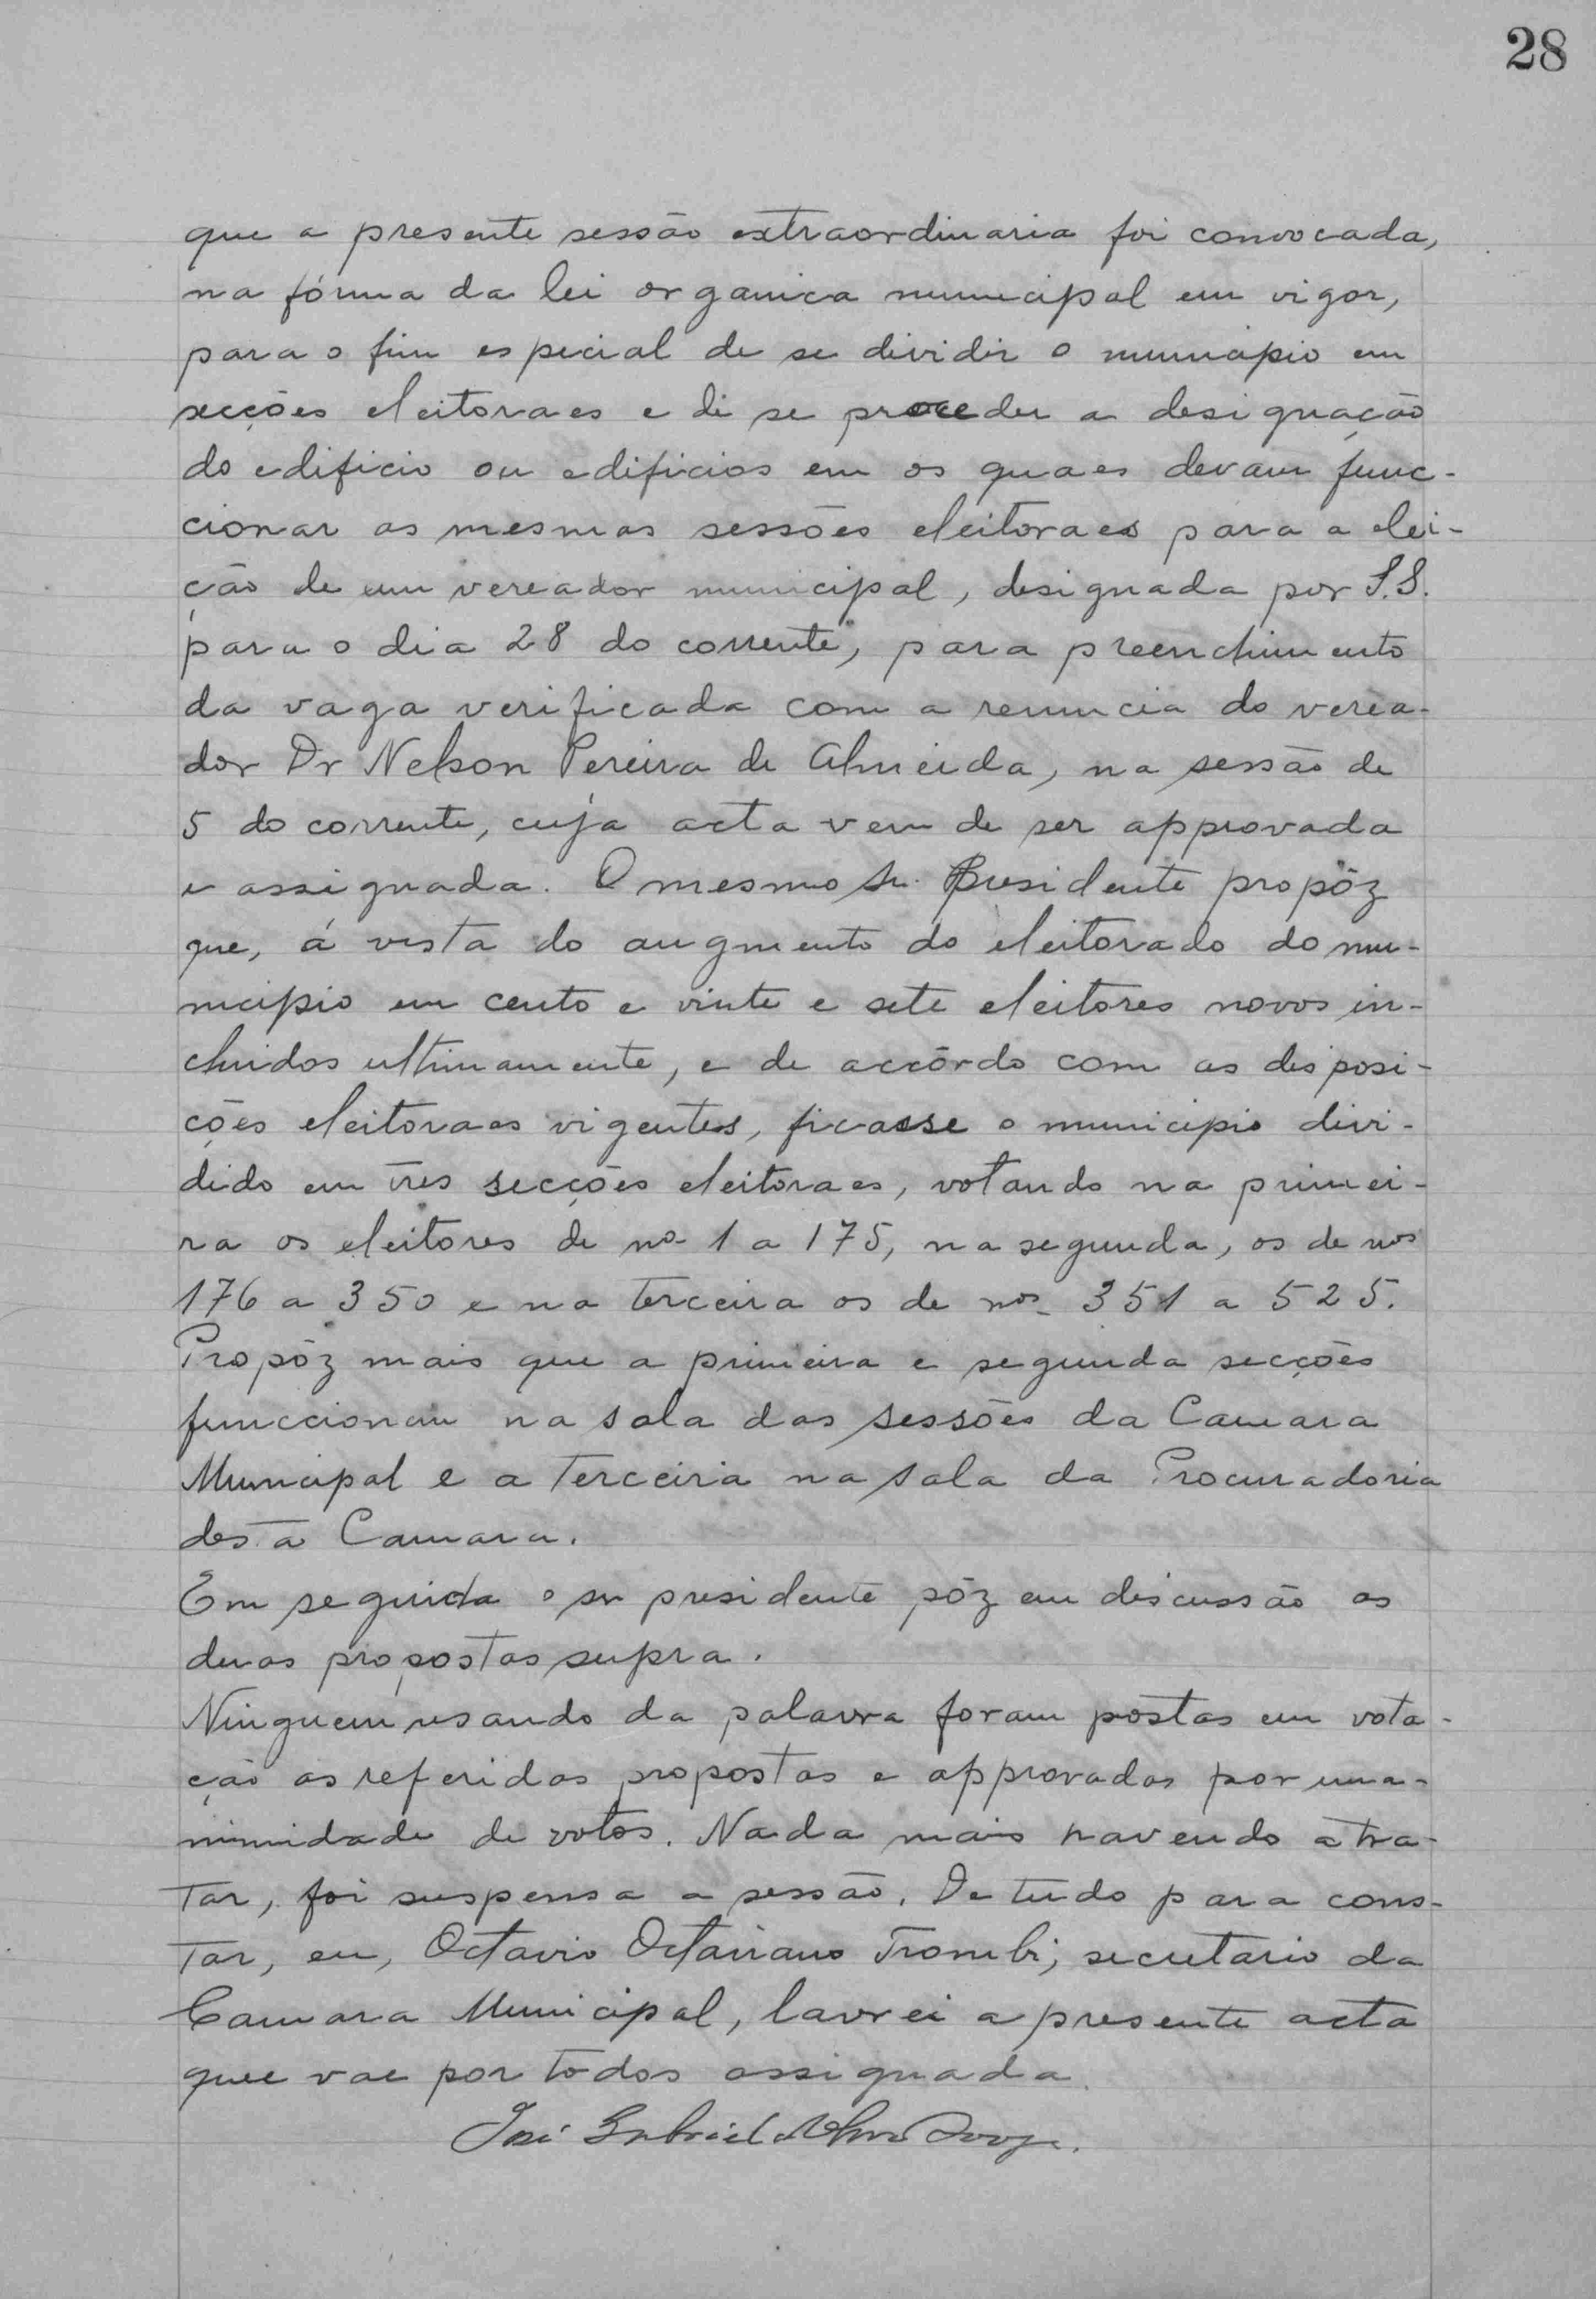 28
que a presente sessão extraordinaria foi convocada,
na fórma da lei organica municipal em vigor,
para o fim especial de se dividir o municipio em
secções eleitoraes e de se proceder a designação
do edificio ou edificios em os quaes devam func-
cionar as mesmas sessões eleitoraes para a elei-
ção de um vereador municipal, designada por S.S.
para o dia 28 do corrente, para preenchimento
da vaga verificada com a renuncia do verea-
dor Dr Nelson Pereira de Almeida, na sessão de
5 do corrente, cuja acta vem de ser approvada
e assignada. O mesmo Sr. Presidente propôz
que, á vista do augmento do eleitorado do mu-
nicipio em cento e vinte e sete eleitores novos in-
cluidos ultimamente, e de accôrdo com as disposi-
ções eleitoraes vigentes, ficasse o municipio divi-
dido em tres secções eleitoraes, votando na primei-
ra os eleitores de nos 1 a 175, na segunda, os de nos
176 a 350 e na terceira os de nos 351 a 525.
Propôz mais que a primeira e segunda secções
funccionem na sala das sessões da Camara
Municipal e a terceira na sala da Procuradoria
desta Camara.
Em seguida o sr presidente pôz em discussão as
duas propostas supra.
Ninguem usando da palavra foram postas em vota-
ção as referidas propostas e approvadas por una-
nimidade de votos. Nada mais havendo a tra-
tar, foi suspensa a sessão. De tudo para cons-
tar, eu, Octavio Octaviano Trombi, secretario da
Camara Municipal, lavrei a presente acta
que vae por todos assignada.
José Gabriel